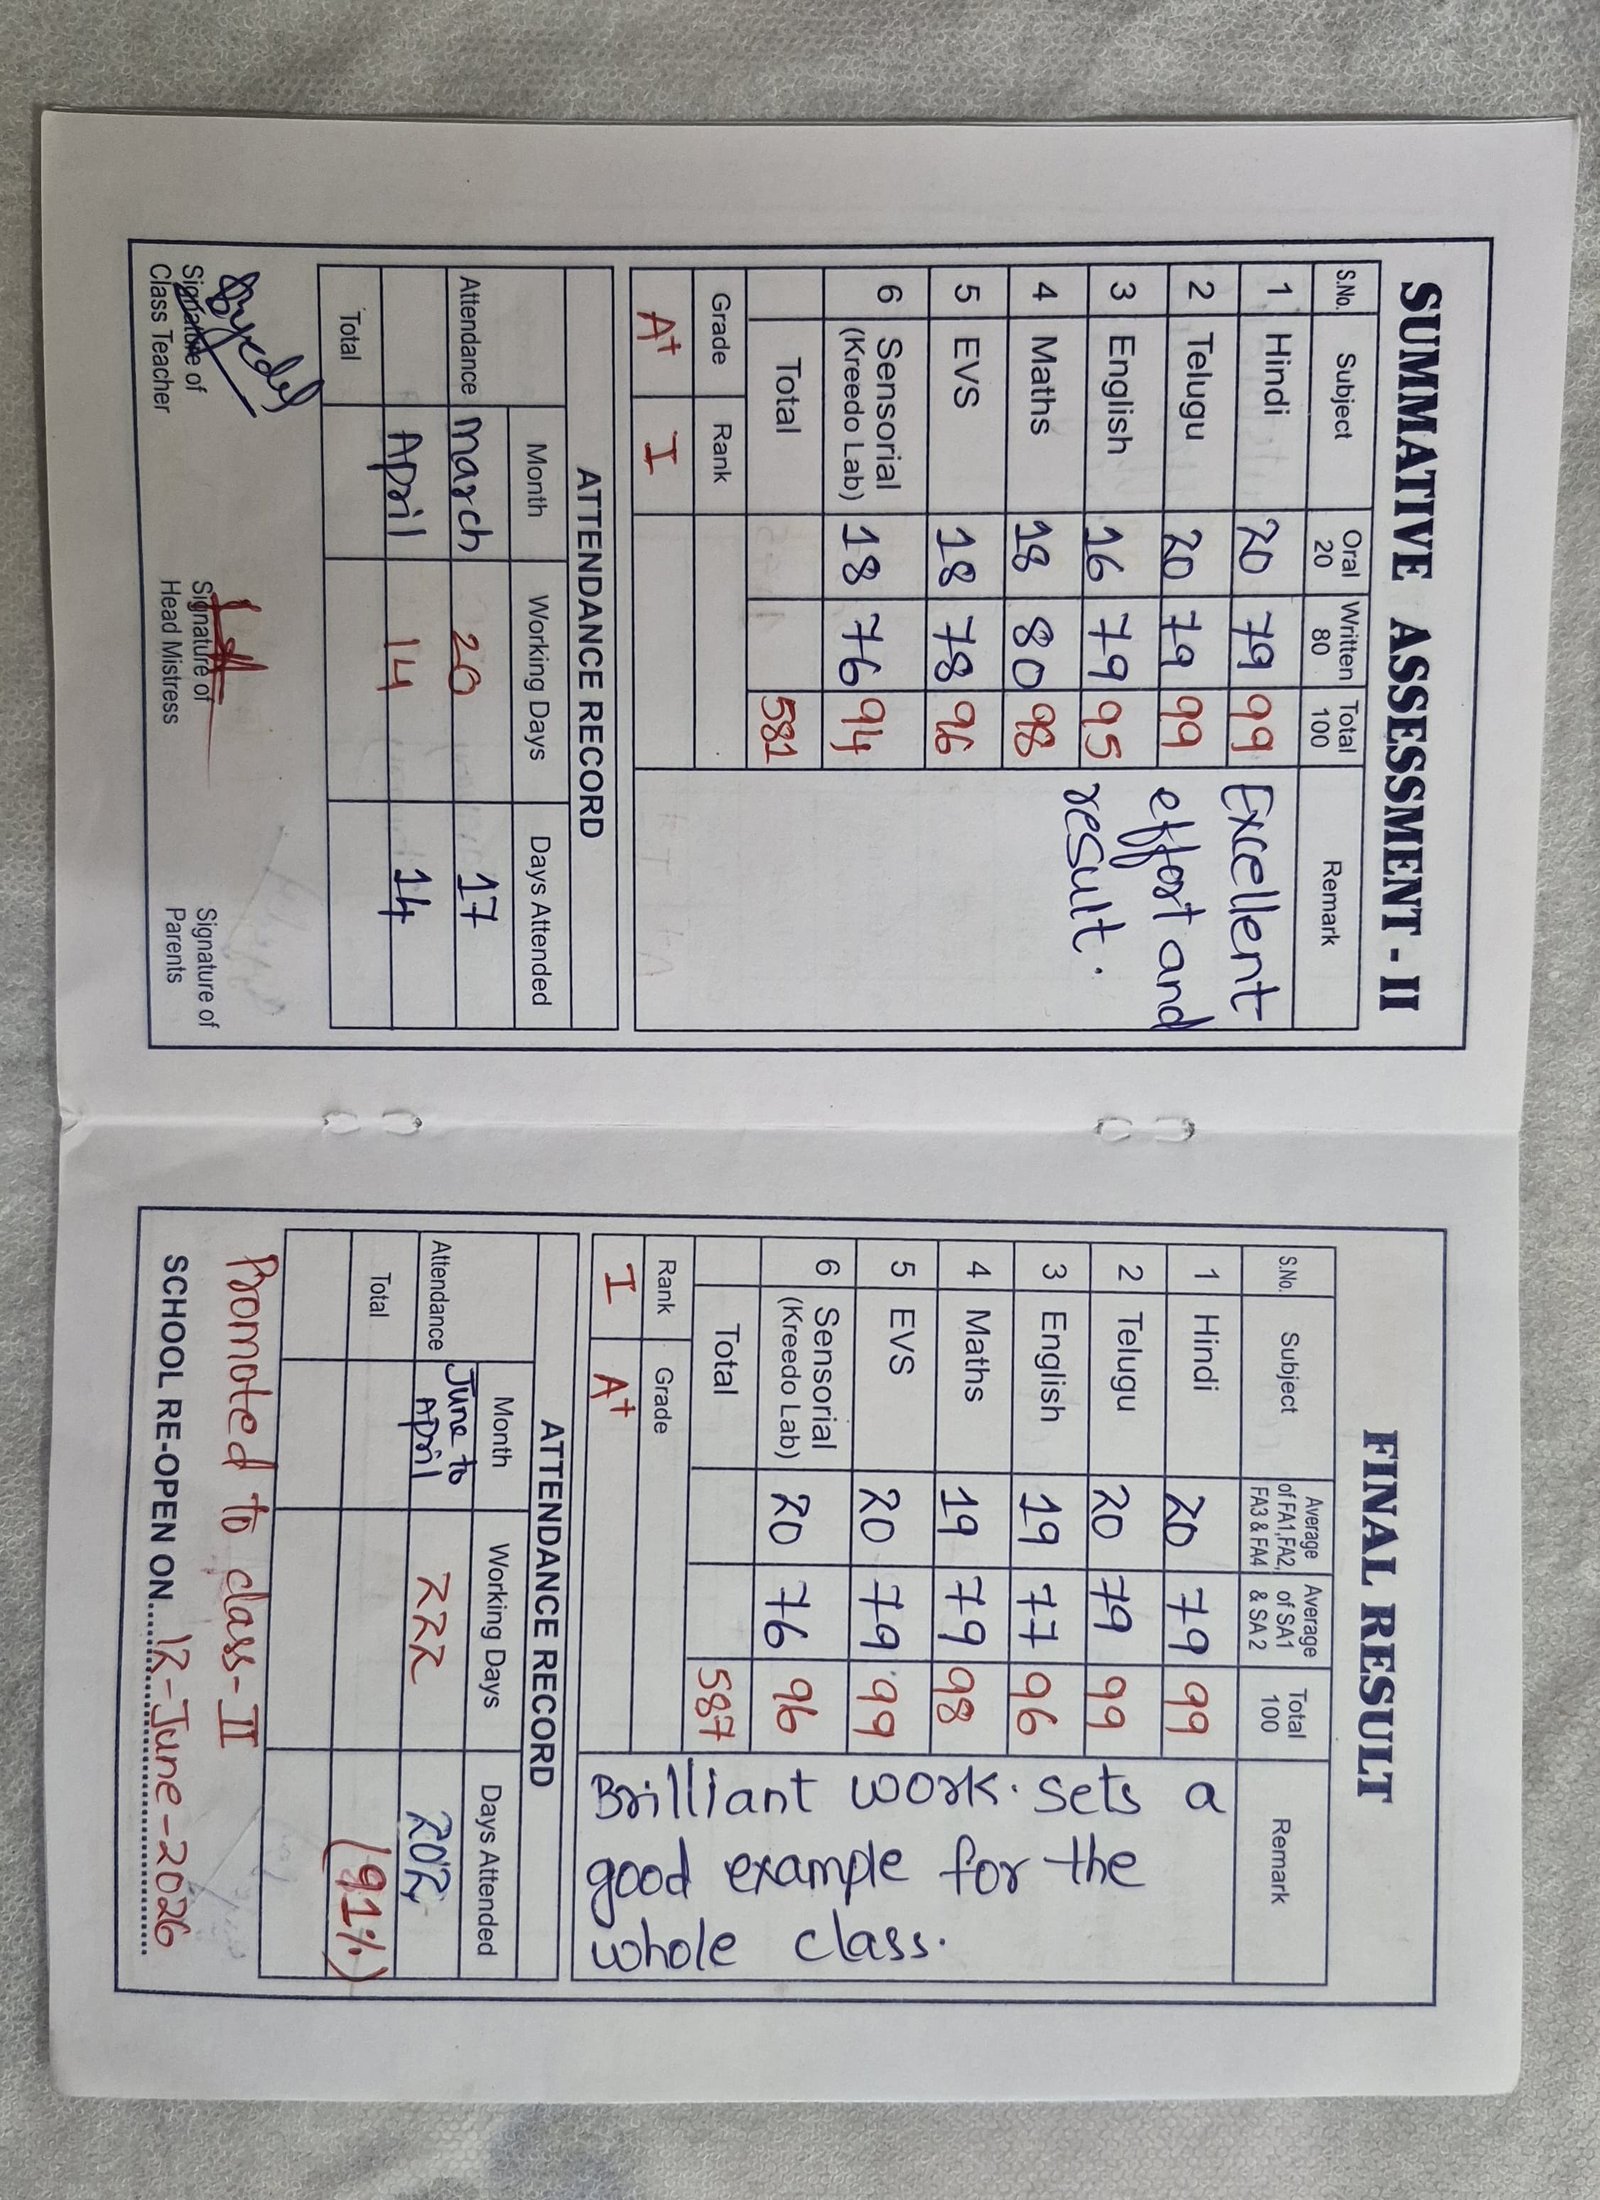 SUMMATIVE ASSESSMENT - II
S.No. Subject Oral 20 Written 80 Total 100 Remark
1 Hindi 20 79 99 Excellent
2 Telugu 20 79 99 effort and
3 English 16 79 95 result.
4 Maths 18 80 98
5 EVS 18 78 96
6 Sensorial (Kreedo Lab) 18 76 94
Total 581
Grade Rank
A+ I
ATTENDANCE RECORD
Month Working Days Days Attended
Attendance March 20 17
April 14 14
Total
Signature of Class Teacher
Signature of Head Mistress
Signature of Parents
FINAL RESULT
S.No. Subject Average of FA1,FA2, FA3 & FA4 Average of SA1 & SA 2 Total 100 Remark
1 Hindi 20 79 99
2 Telugu 20 79 99
3 English 19 77 96
4 Maths 19 79 98
5 EVS 20 79 99
6 Sensorial (Kreedo Lab) 20 76 96
Total 587
Rank Grade
I A+
Brilliant work. sets a
good example for the
whole class.
ATTENDANCE RECORD
Month Working Days Days Attended
Attendance June to April 222 202
Total (91%)
Promoted to class-II
SCHOOL RE-OPEN ON 12-June-2026